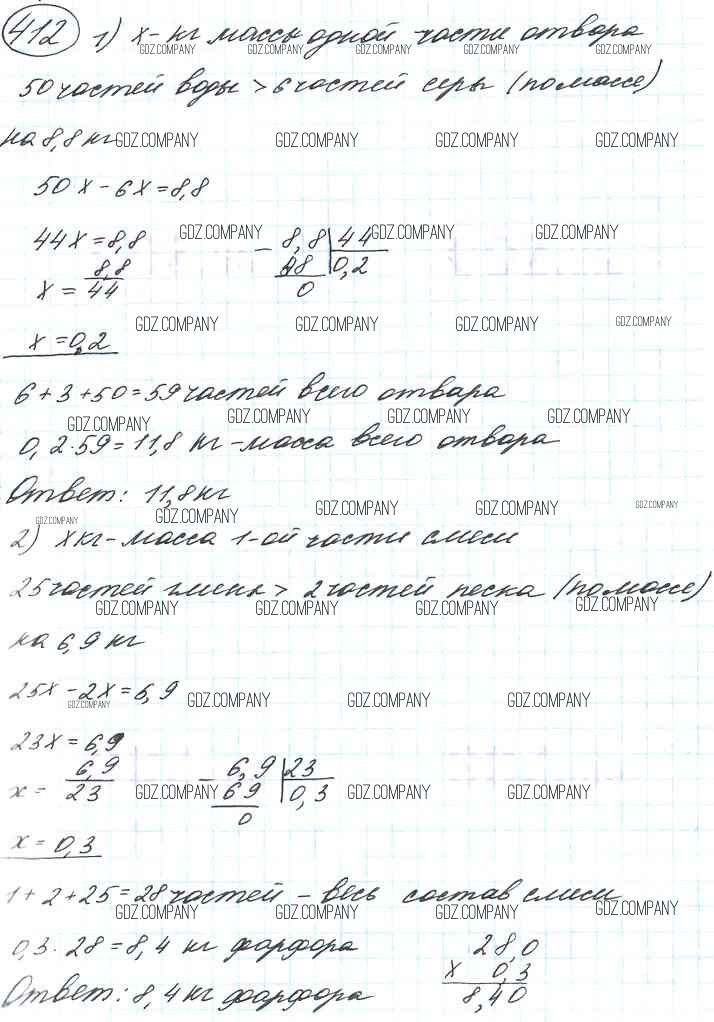 412 1) х - кг массы одной части отвара
GDZ.COMPANY GDZ.COMPANY GDZ.COMPANY GDZ.COMPANY
50 частей воды > 6 частей серы (по массе)
на 8,8 кг GDZ.COMPANY GDZ.COMPANY GDZ.COMPANY GDZ.COMPANY
50х - 6х = 8,8
44х = 8,8 GDZ.COMPANY - 8,8 | 44 GDZ.COMPANY GDZ.COMPANY
х = 8,8/44 88 | 0,2
0
GDZ.COMPANY GDZ.COMPANY GDZ.COMPANY GDZ.COMPANY
х = 0,2
6 + 3 + 50 = 59 частей всего отвара
GDZ.COMPANY GDZ.COMPANY GDZ.COMPANY GDZ.COMPANY
0,2 · 59 = 11,8 кг - масса всего отвара
Ответ: 11,8 кг
GDZ.COMPANY GDZ.COMPANY GDZ.COMPANY GDZ.COMPANY GDZ.COMPANY
2) х кг - масса 1-ой части смеси
25 частей глины > 2 частей песка (по массе)
GDZ.COMPANY GDZ.COMPANY GDZ.COMPANY GDZ.COMPANY
на 6,9 кг
25х - 2х = 6,9
GDZ.COMPANY GDZ.COMPANY GDZ.COMPANY GDZ.COMPANY
23х = 6,9
х = 6,9/23 - 6,9 | 23
69 | 0,3
0
GDZ.COMPANY GDZ.COMPANY GDZ.COMPANY
х = 0,3
1 + 2 + 25 = 28 частей - весь состав смеси
GDZ.COMPANY GDZ.COMPANY GDZ.COMPANY GDZ.COMPANY
0,3 · 28 = 8,4 кг фарфора 28,0
х 0,3
Ответ: 8,4 кг фарфора 8,40